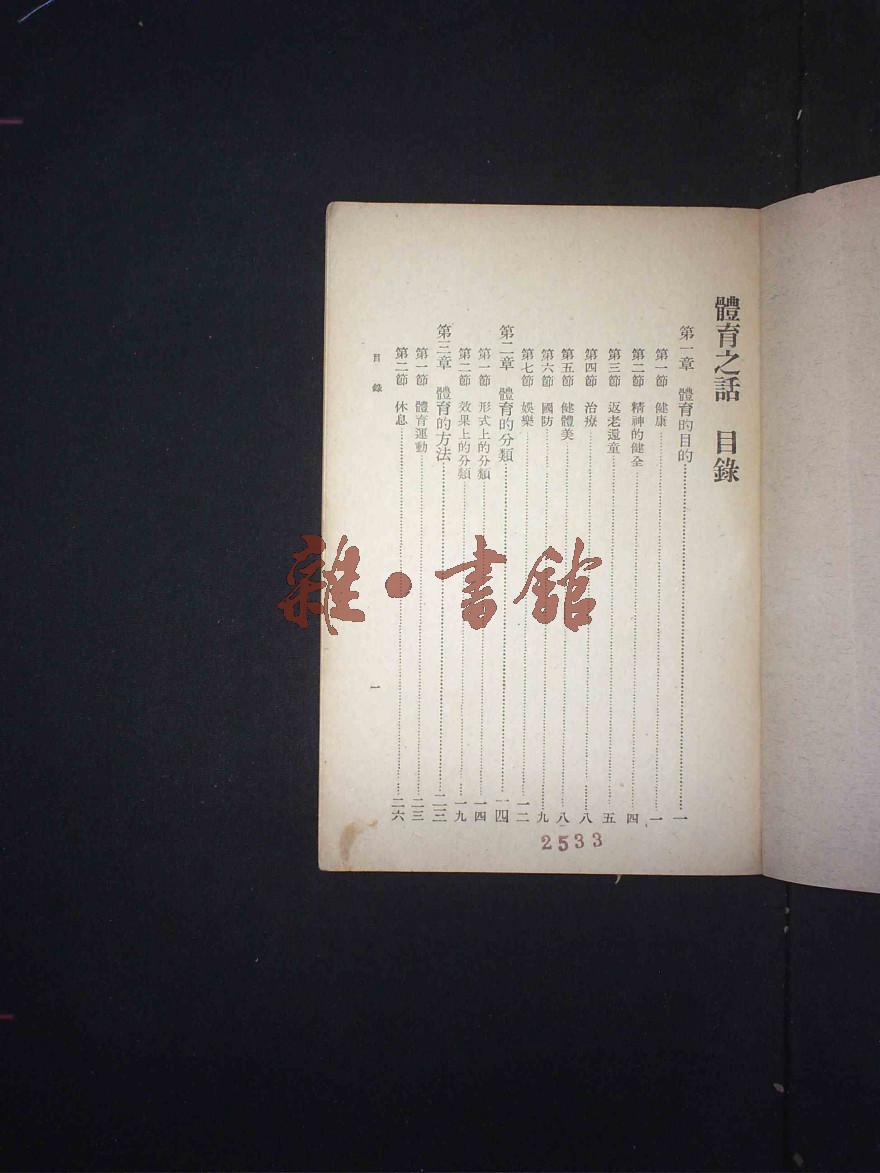 體育之話　目錄
第一章　體育的目的……一
第一節　健康……一
第二節　精神的健全……四
第三節　返老還童……五
第四節　治療……八
第五節　健體美……八
第六節　國防……九
第七節　娛樂……一二
第二章　體育的分類……一四
第一節　形式上的分類……一四
第二節　效果上的分類……一九
第三章　體育的方法……二三
第一節　體育運動……二三
第二節　休息……二六
目錄
一
2533
雜·書館